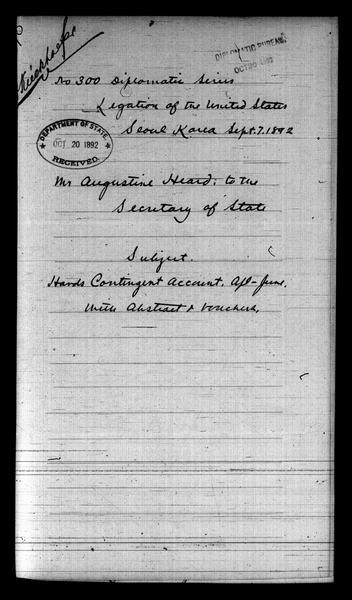 DIPLOMATIC BUREAU
No 300 Diplomatic Series
Legation of the United States
Seoul Korea Sept. 7. 1892
DEPARTMENT OF STATE.
OCT 20 1892
RECEIVED.
Mr Augustine Heard, to the
Secretary of State
Subject.
Contingent Account. Apl-June.
With Abstract & Vouchers,